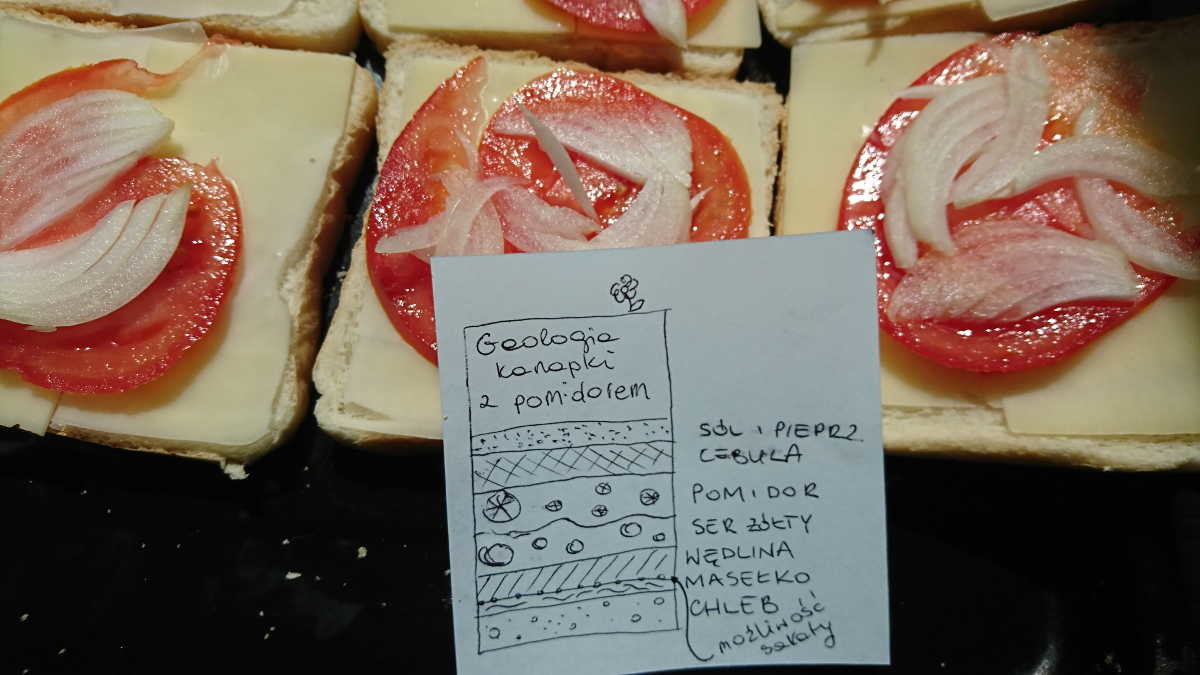 Geologia
kanapki
z pomidorem
SÓL I PIEPRZ
CEBULA
POMIDOR
SER ŻÓŁTY
WĘDLINA
MASEŁKO
CHLEB
możliwość
sałaty